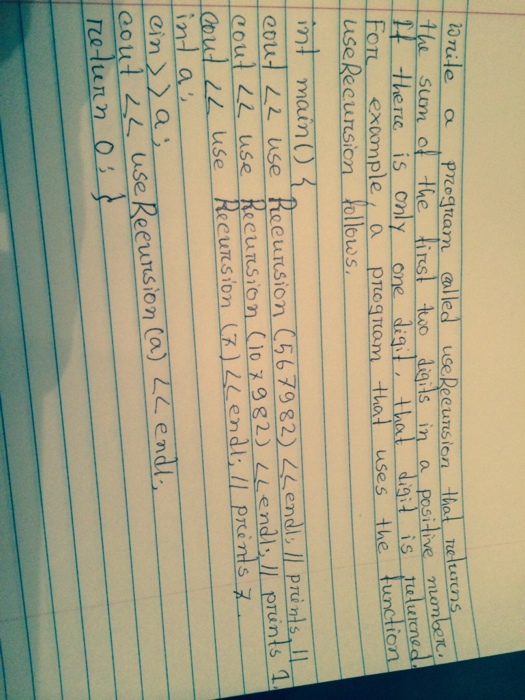 Write a program called useRecursion that returns
the sum of the first two digits in a positive number.
If there is only one digit, that digit is returned.
For example, a program that uses the function
useRecursion follows.
int main() {
cout << use Recursion (567982) <<endl; // prints 11
cout << use Recursion (107982) <<endl; // prints 1.
cout << use Recursion (7) <<endl; // prints 7.
int a;
cin >> a;
cout << useRecursion(a) << endl;
return 0; }